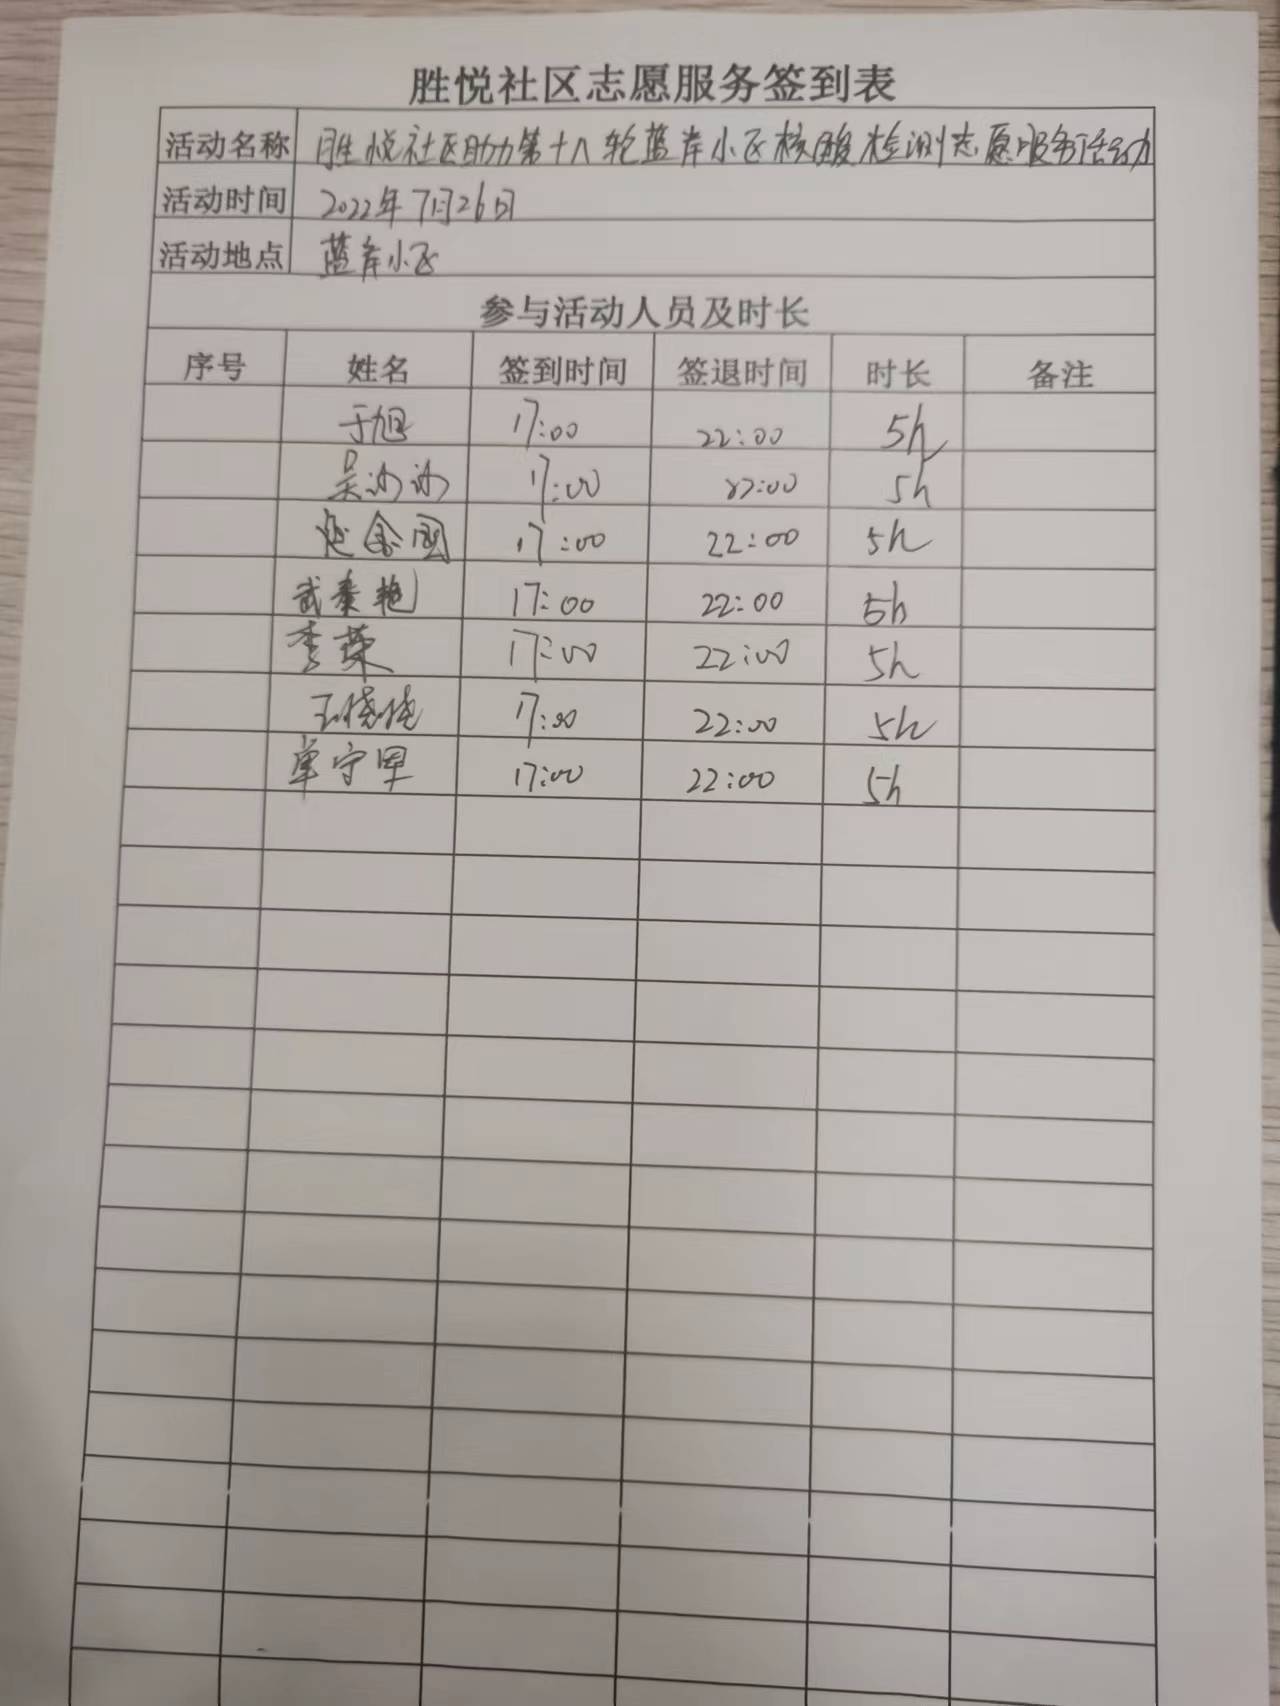 胜悦社区志愿服务签到表
活动名称 胜悦社区助力第十八轮蓝岸小区核酸检测志愿服务活动
活动时间 2022年7月26日
活动地点 蓝岸小区
参与活动人员及时长
序号 姓名 签到时间 签退时间 时长 备注
于旭 17:00 22:00 5h
吴沙沙 17:00 22:00 5h
金国 17:00 22:00 5h
武秦艳 17:00 22:00 5h
李荣 17:00 22:00 5h
王晓晓 17:00 22:00 5h
单守军 17:00 22:00 5h